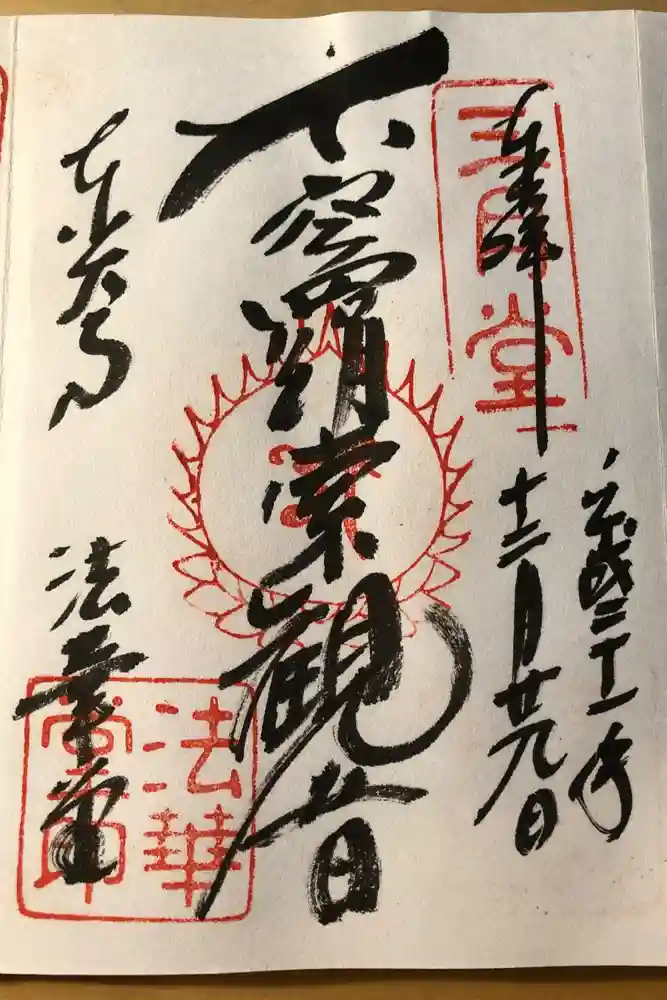 奉拝
三月堂
平成二十一年
十二月廿九日
不空羂索観音
東大寺
法華堂
法華
堂印